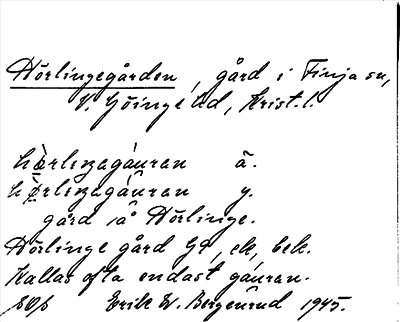 Hörlingegården, gård i Finja sn,
V. Göinge hd, Krist. l.
hò̤rlıŋagáuran ä.
hò̤rlıŋagáuran y.
gård i å Hörlinge.
Hörlinge gård GS, ek, bek.
Kallas ofta endast gáuran.
Erik W. Bergenrud 1945.